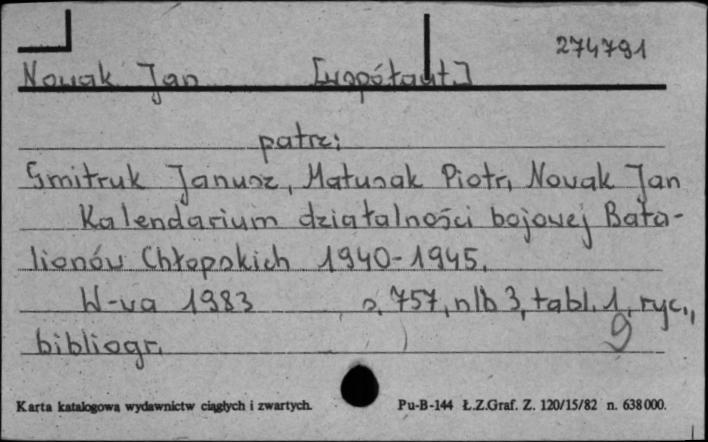 274791
Nowak Jan [współaut.]
patrz:
Gmitruk Janusz, Matusak Piotr, Nowak Jan
Kalendarium działalności bojowej Bata-
lionów Chłopskich 1940-1945.
W-wa 1983 s. 757, nlb 3, tabl. 1, ryc.,
bibliogr. 9
Karta katalogowa wydawnictw ciągłych i zwartych. Pu-B-144 Ł.Z.Graf. Z. 120/15/82 n. 638 000.